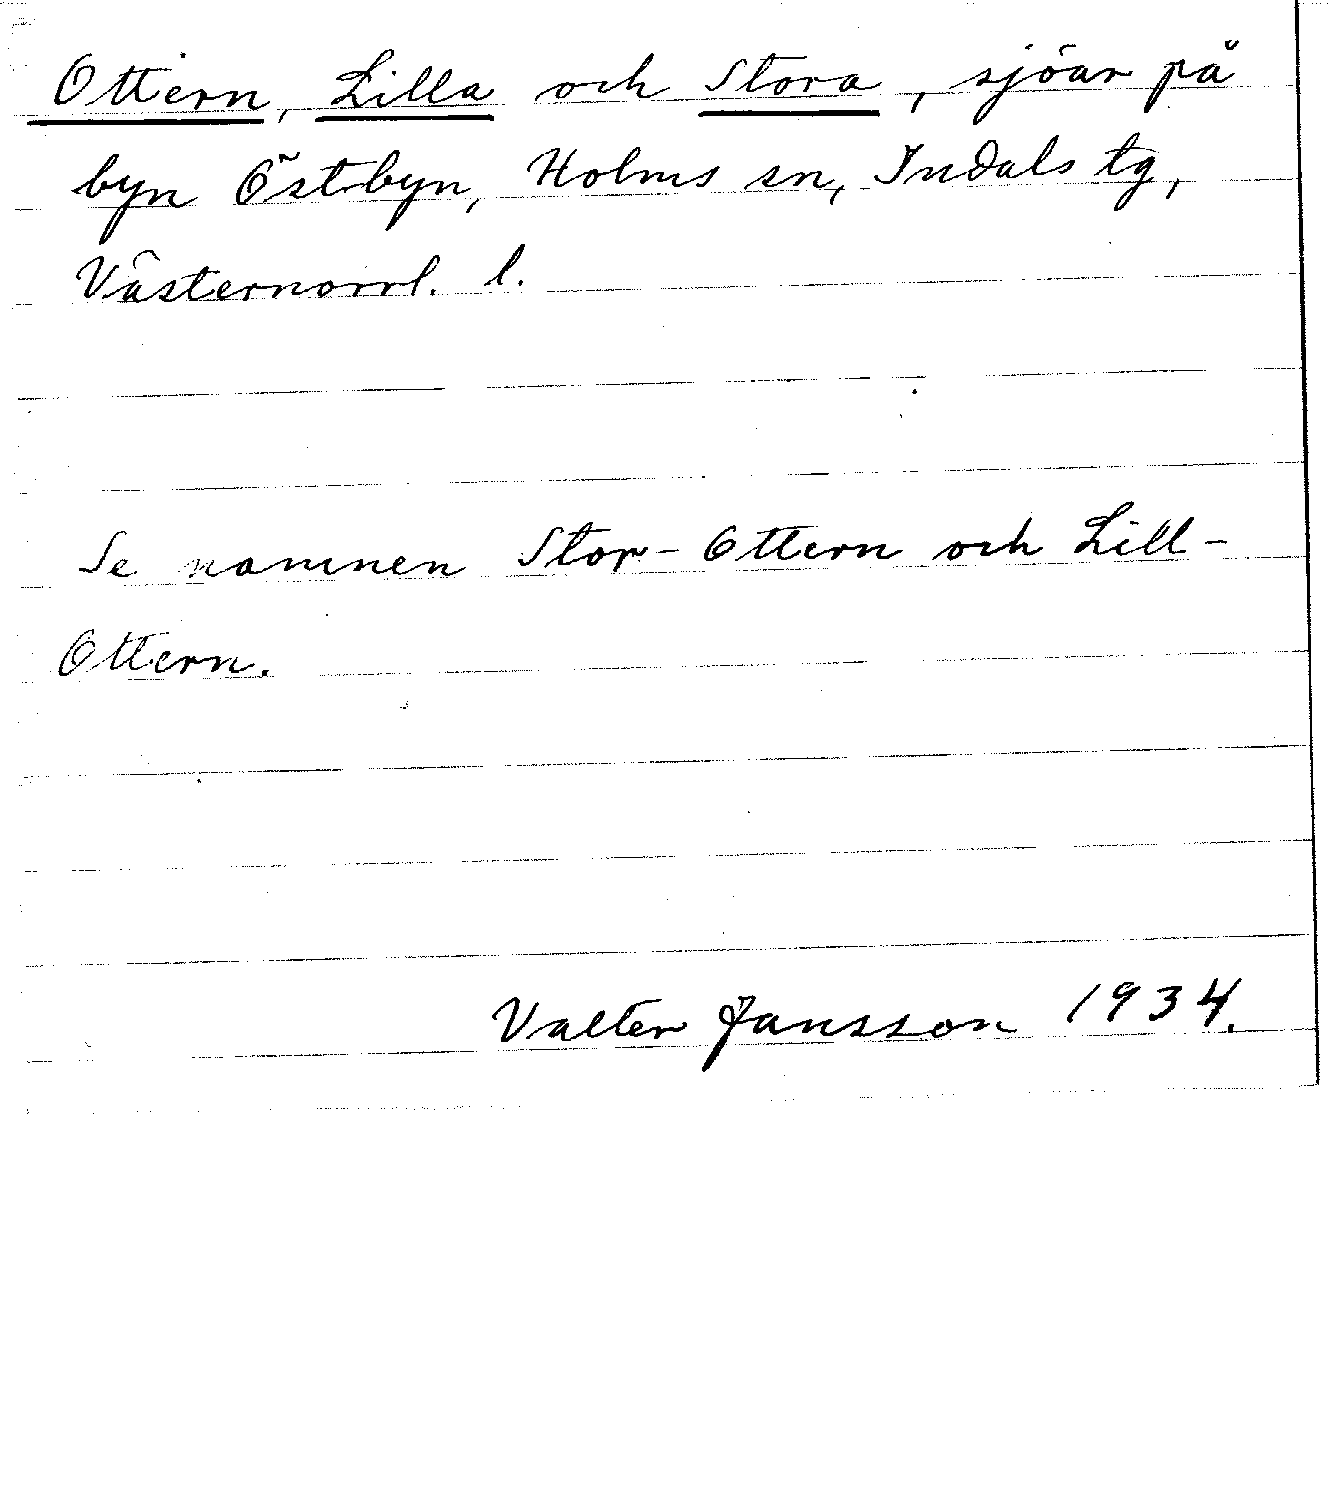 Ottern, Lilla och Stora, sjöar på
byn Östbyn, Holms sn, Indals tg,
Västernorrl. l.
Se namnen Stor-Ottern och Lill-
Ottern.
Valter Jansson 1934.